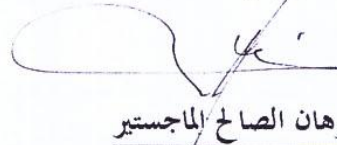 الصالح الماجستير